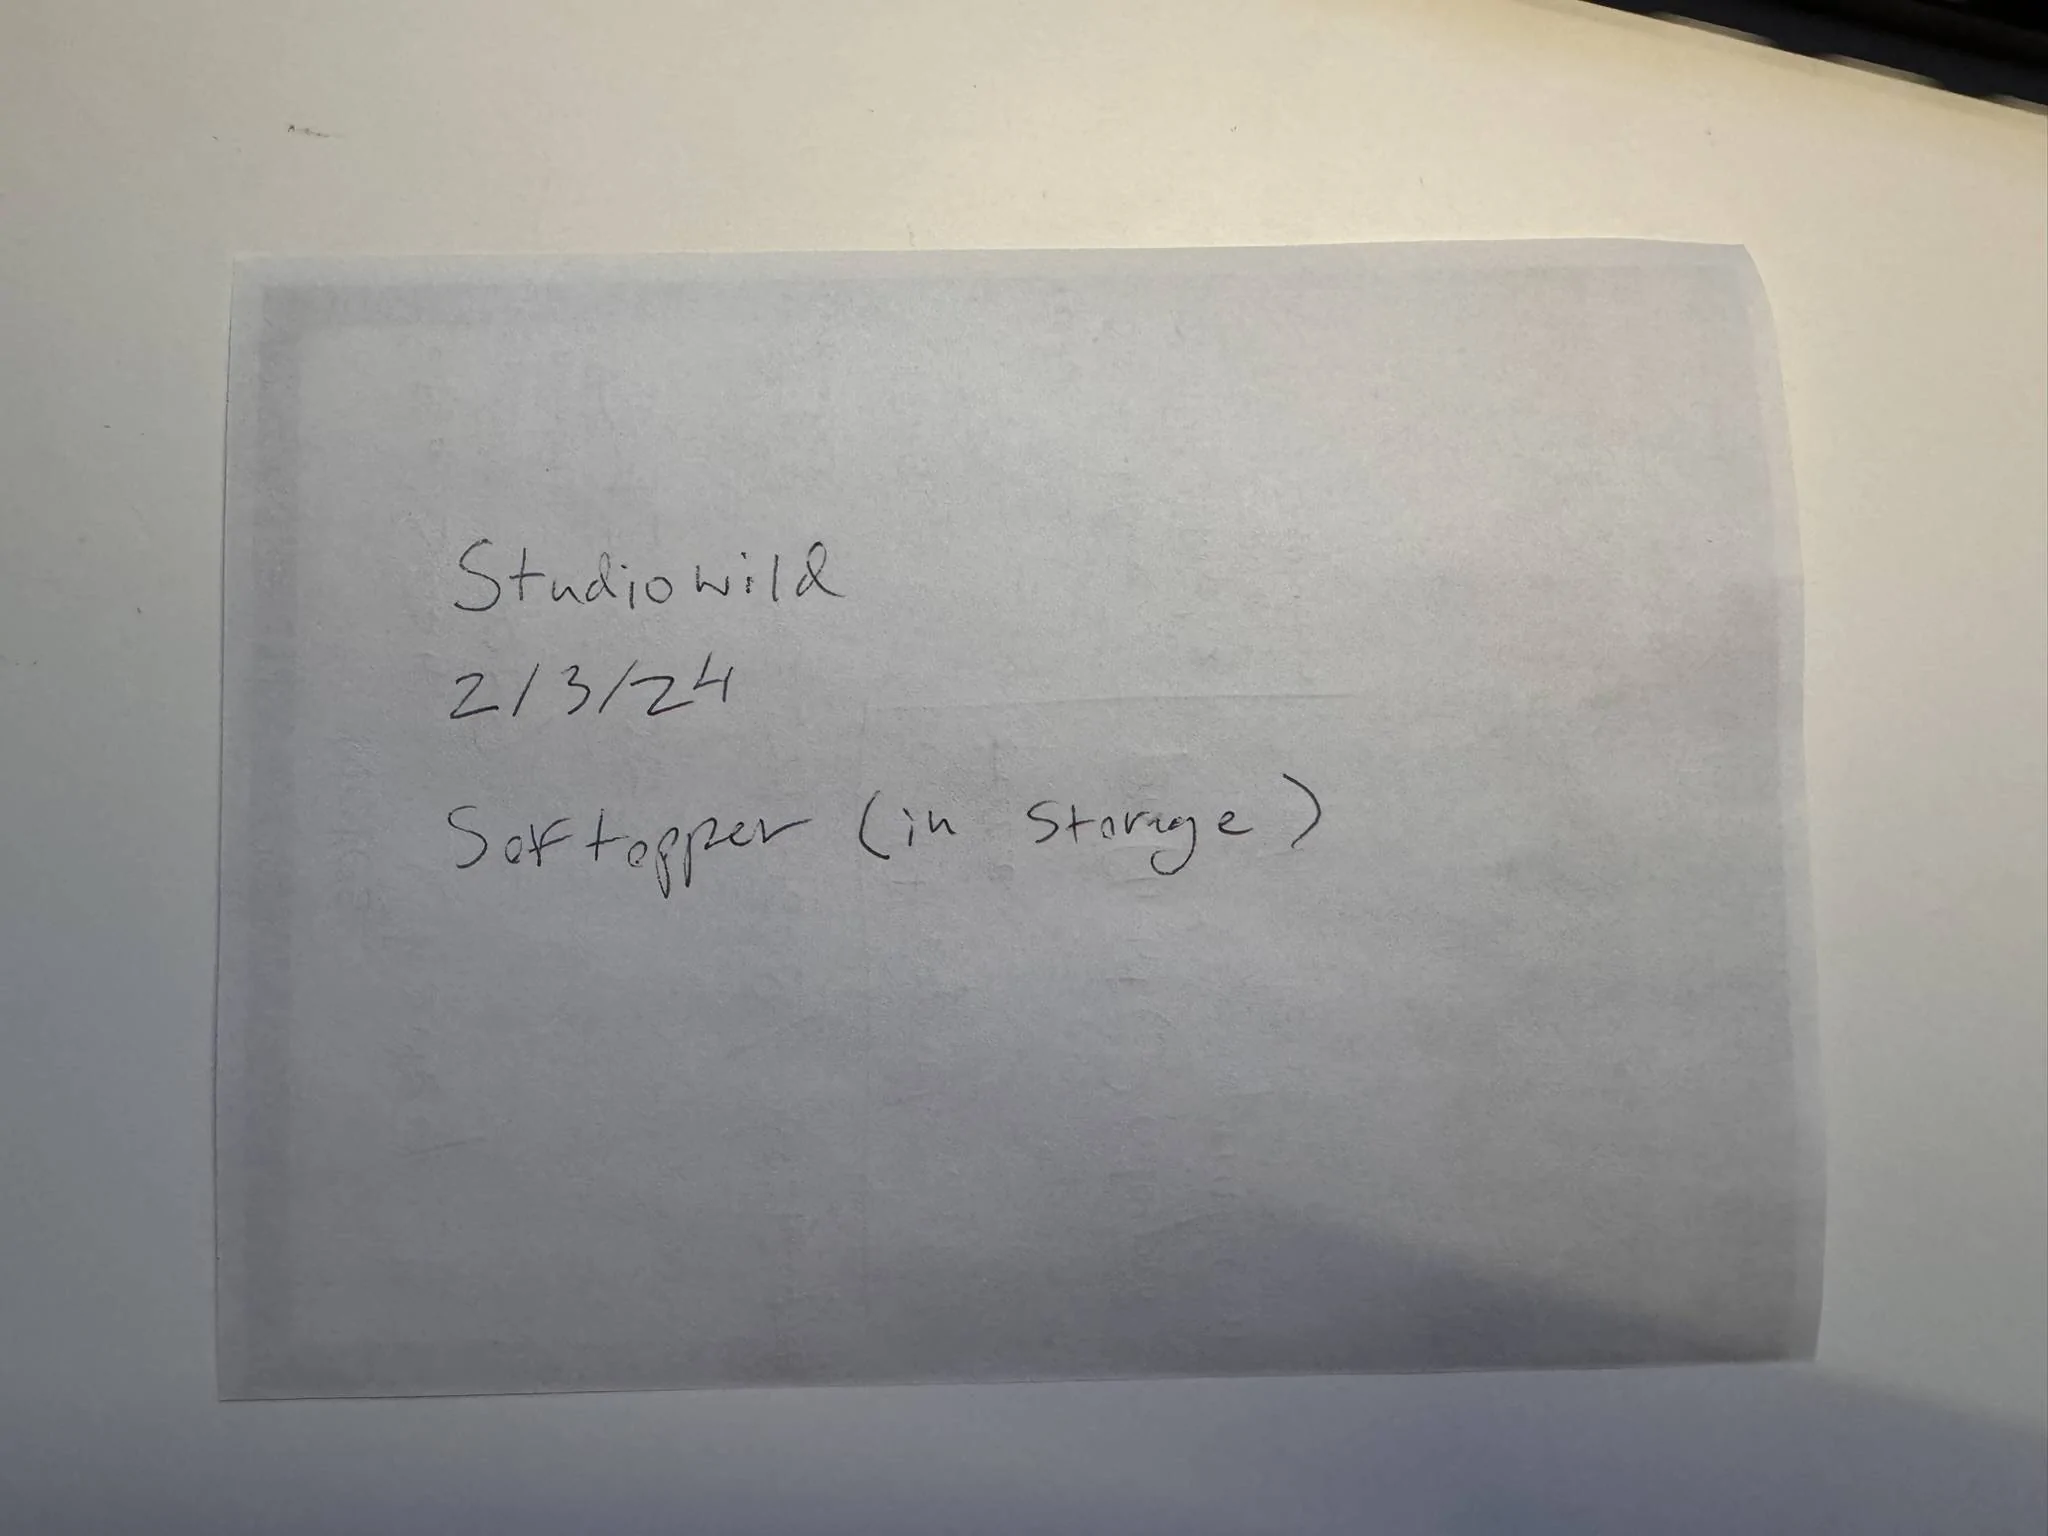 Studiowild
2/3/24
Softopper (in storage)